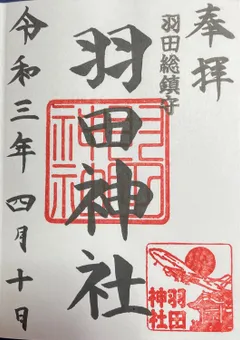 奉拝
羽田総鎮守
羽田神社
令和三年 四月十日
羽田
神社